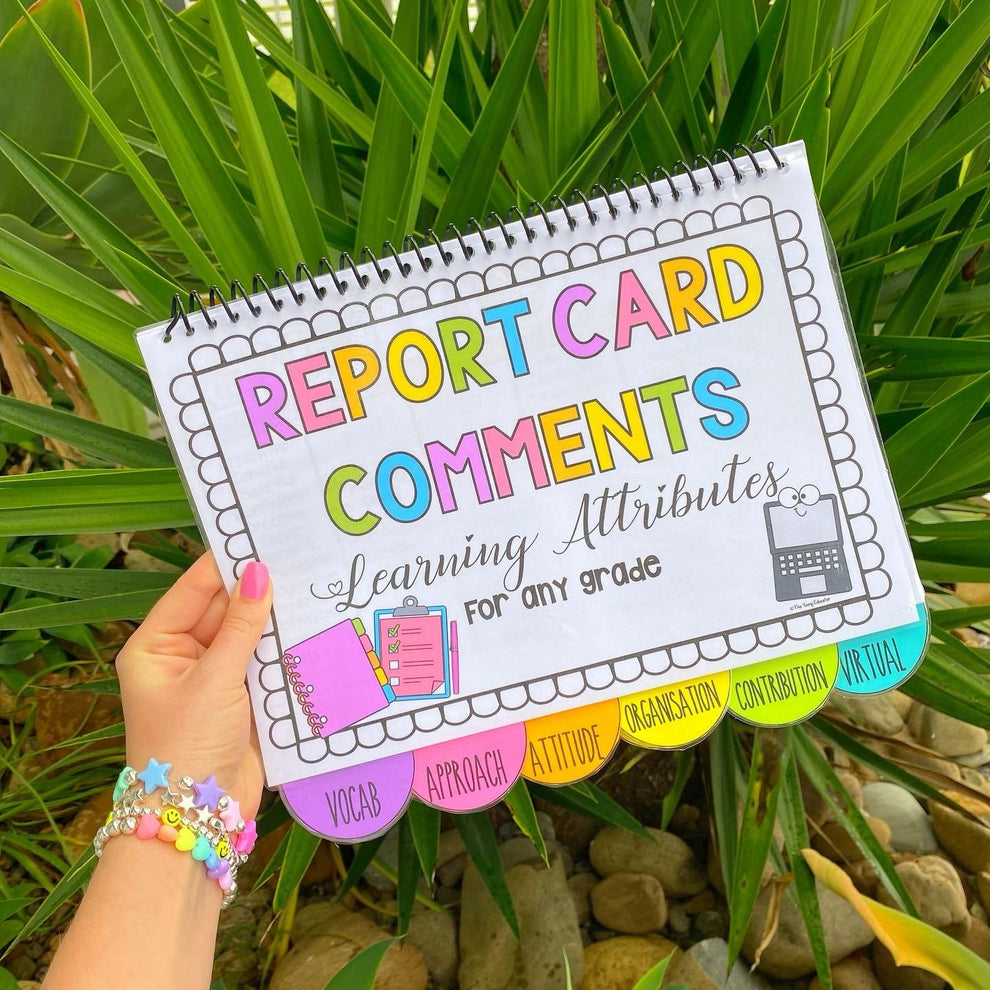 REPORT CARD
COMMENTS
Learning Attributes
FOR any grade
©The Young Educator
VOCAB
APPROACH
ATTITUDE
ORGANISATION
CONTRIBUTION
VIRTUAL